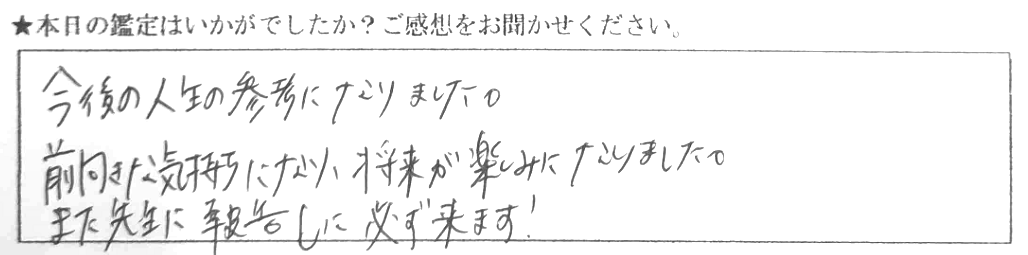 ★本日の鑑定はいかがでしたか？ご感想をお聞かせください。
今後の人生の参考になりました。
前向きな気持ちになり、将来が楽しみになりました。
また先生に報告しに必ず来ます！